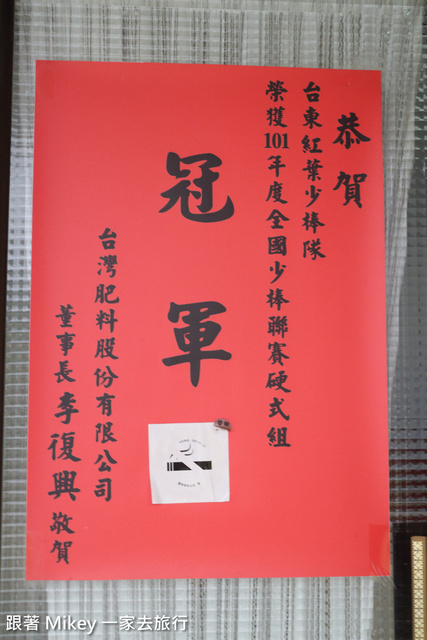 恭賀
台東紅葉少棒隊
榮獲101年度全國少棒聯賽硬式組
冠軍
台灣肥料股份有限公司
董事長李復興敬賀
跟著 Mikey 一家去旅行